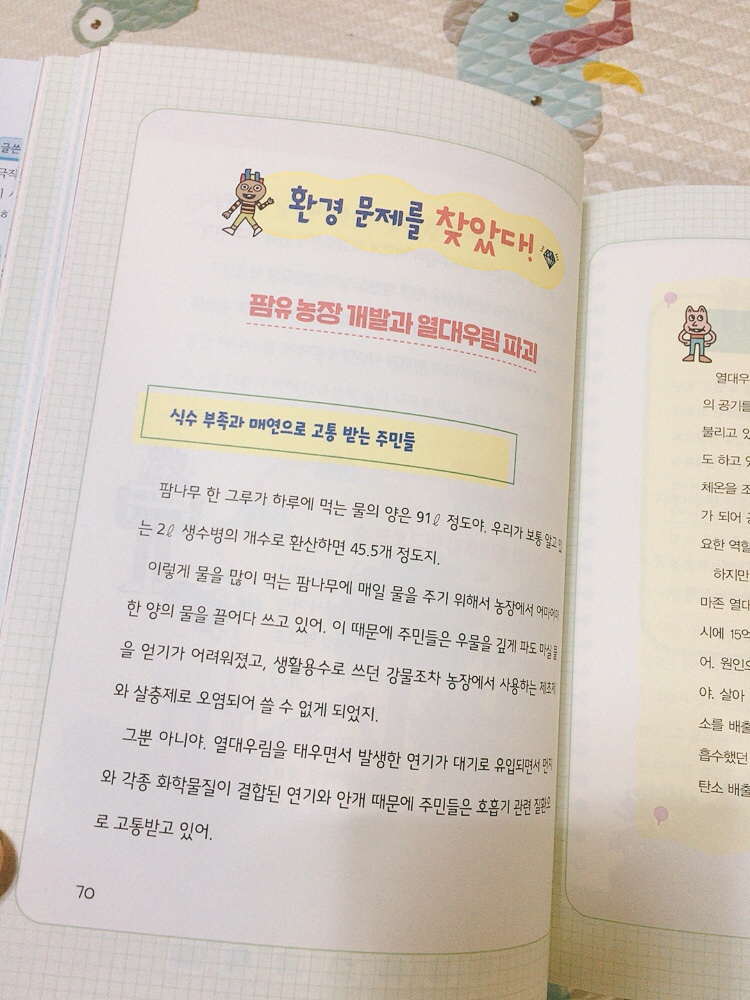 환경 문제를 찾았다!
팜유 농장 개발과 열대우림 파괴
식수 부족과 매연으로 고통 받는 주민들
팜나무 한 그루가 하루에 먹는 물의 양은 91ℓ 정도야. 우리가 보통 알고 있
는 2ℓ 생수병의 개수로 환산하면 45.5개 정도지.
이렇게 물을 많이 먹는 팜나무에 매일 물을 주기 위해서 농장에서 어마어마
한 양의 물을 끌어다 쓰고 있어. 이 때문에 주민들은 우물을 깊게 파도 마실 물
을 얻기가 어려워졌고, 생활용수로 쓰던 강물조차 농장에서 사용하는 제초제
와 살충제로 오염되어 쓸 수 없게 되었지.
그뿐 아니야. 열대우림을 태우면서 발생한 연기가 대기로 유입되면서 먼지
와 각종 화학물질이 결합된 연기와 안개 때문에 주민들은 호흡기 관련 질환으
로 고통받고 있어.
70
글쓴
극작
열대우
의 공기를
불리고 있
도 하고 있
체온을 조
가 되어
요한 역할
하지만
마존 열대
시에 15억
어. 원인
야. 살아
소를 배출
흡수했던
탄소 배출